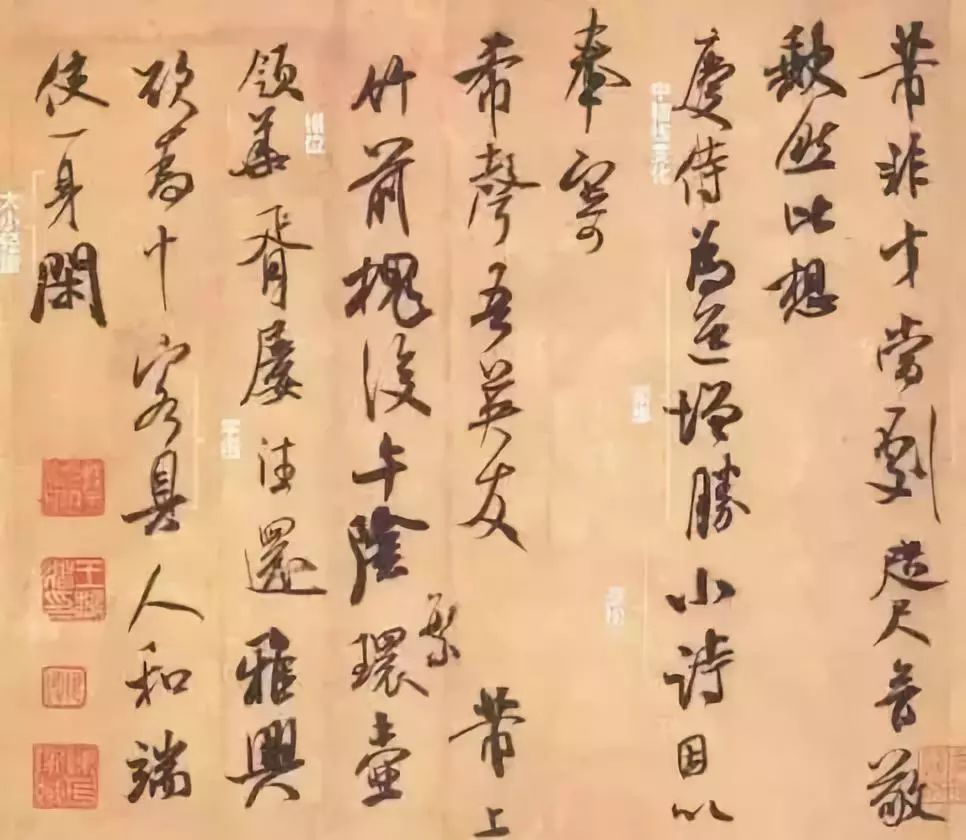 芾非才當劇咫尺音敬
缺然比想
慶侍為道增勝小詩因以
奉寄
希聲吾英友 芾上
竹前槐後午陰環繁壺
領華胥屢往還雅興
欲為十客具人和端
使一身閑